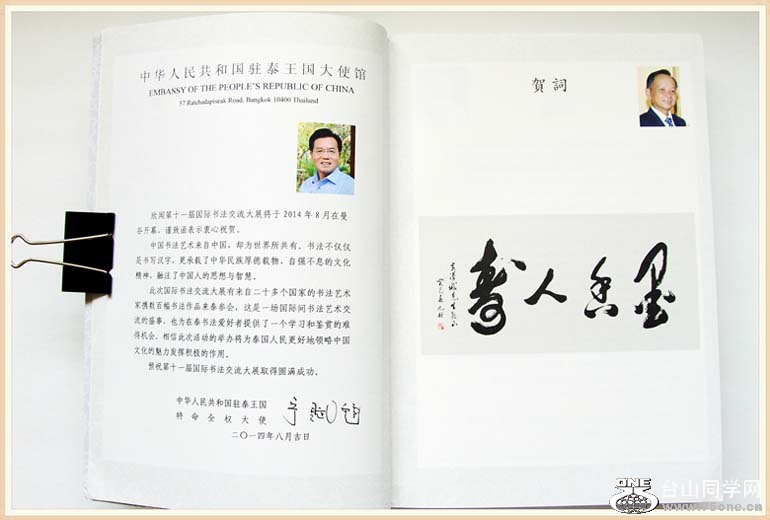 中华人民共和国驻泰王国大使馆
EMBASSY OF THE PEOPLE'S REPUBLIC OF CHINA
57 Ratchadapiseak Road, Bangkok 10400 Thailand
欣闻第十一届国际书法交流大展将于2014年8月在曼
谷开幕，谨致函表示衷心祝贺。
中国书法艺术来自中国，却为世界所共有。书法不仅仅
是书写汉字，更承载了中华民族厚德载物、自强不息的文化
精神，融注了中国人的思想与智慧。
此次国际书法交流大展有来自二十多个国家的书法艺术
家携数百幅书法作品来泰参会，这是一场国际间书法艺术交
流的盛事，也为在泰书法爱好者提供了一个学习和鉴赏的难
得机会。相信此次活动的举办将为泰国人民更好地领略中国
文化的魅力发挥积极的作用。
预祝第十一届国际书法交流大展取得圆满成功。
中华人民共和国驻泰王国
特命全权大使
二〇一四年八月吉日
賀詞
墨香人壽
ONE
台山同学网